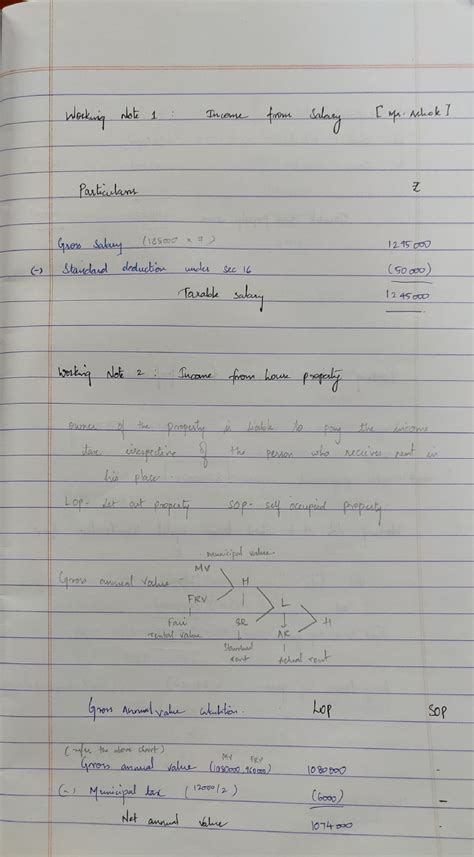 Working Note 1 : Income from Salary [Mr. Ashok]
Particulars ₹
Gross Salary (185000 × 7) 1295000
(-) Standard deduction under sec 16 (50000)
Taxable Salary 1245000
Working Note 2 : Income from house property
owner of the property is liable to pay the income
tax irrespective of the person who receives rent in
his place.
LOP - Let out property SOP - self occupied property
municipal value
MV
Gross annual value - H
FRV L
Fair SR H
rental value AR
Standard
rent Actual rent
Gross Annual value calculation. LOP SOP
(refer the above chart) MV FRV
Gross annual value (1080000, 960000) 1080000 -
(-) Municipal tax (12000/2) (6000) -
Net annual value 1074000 -